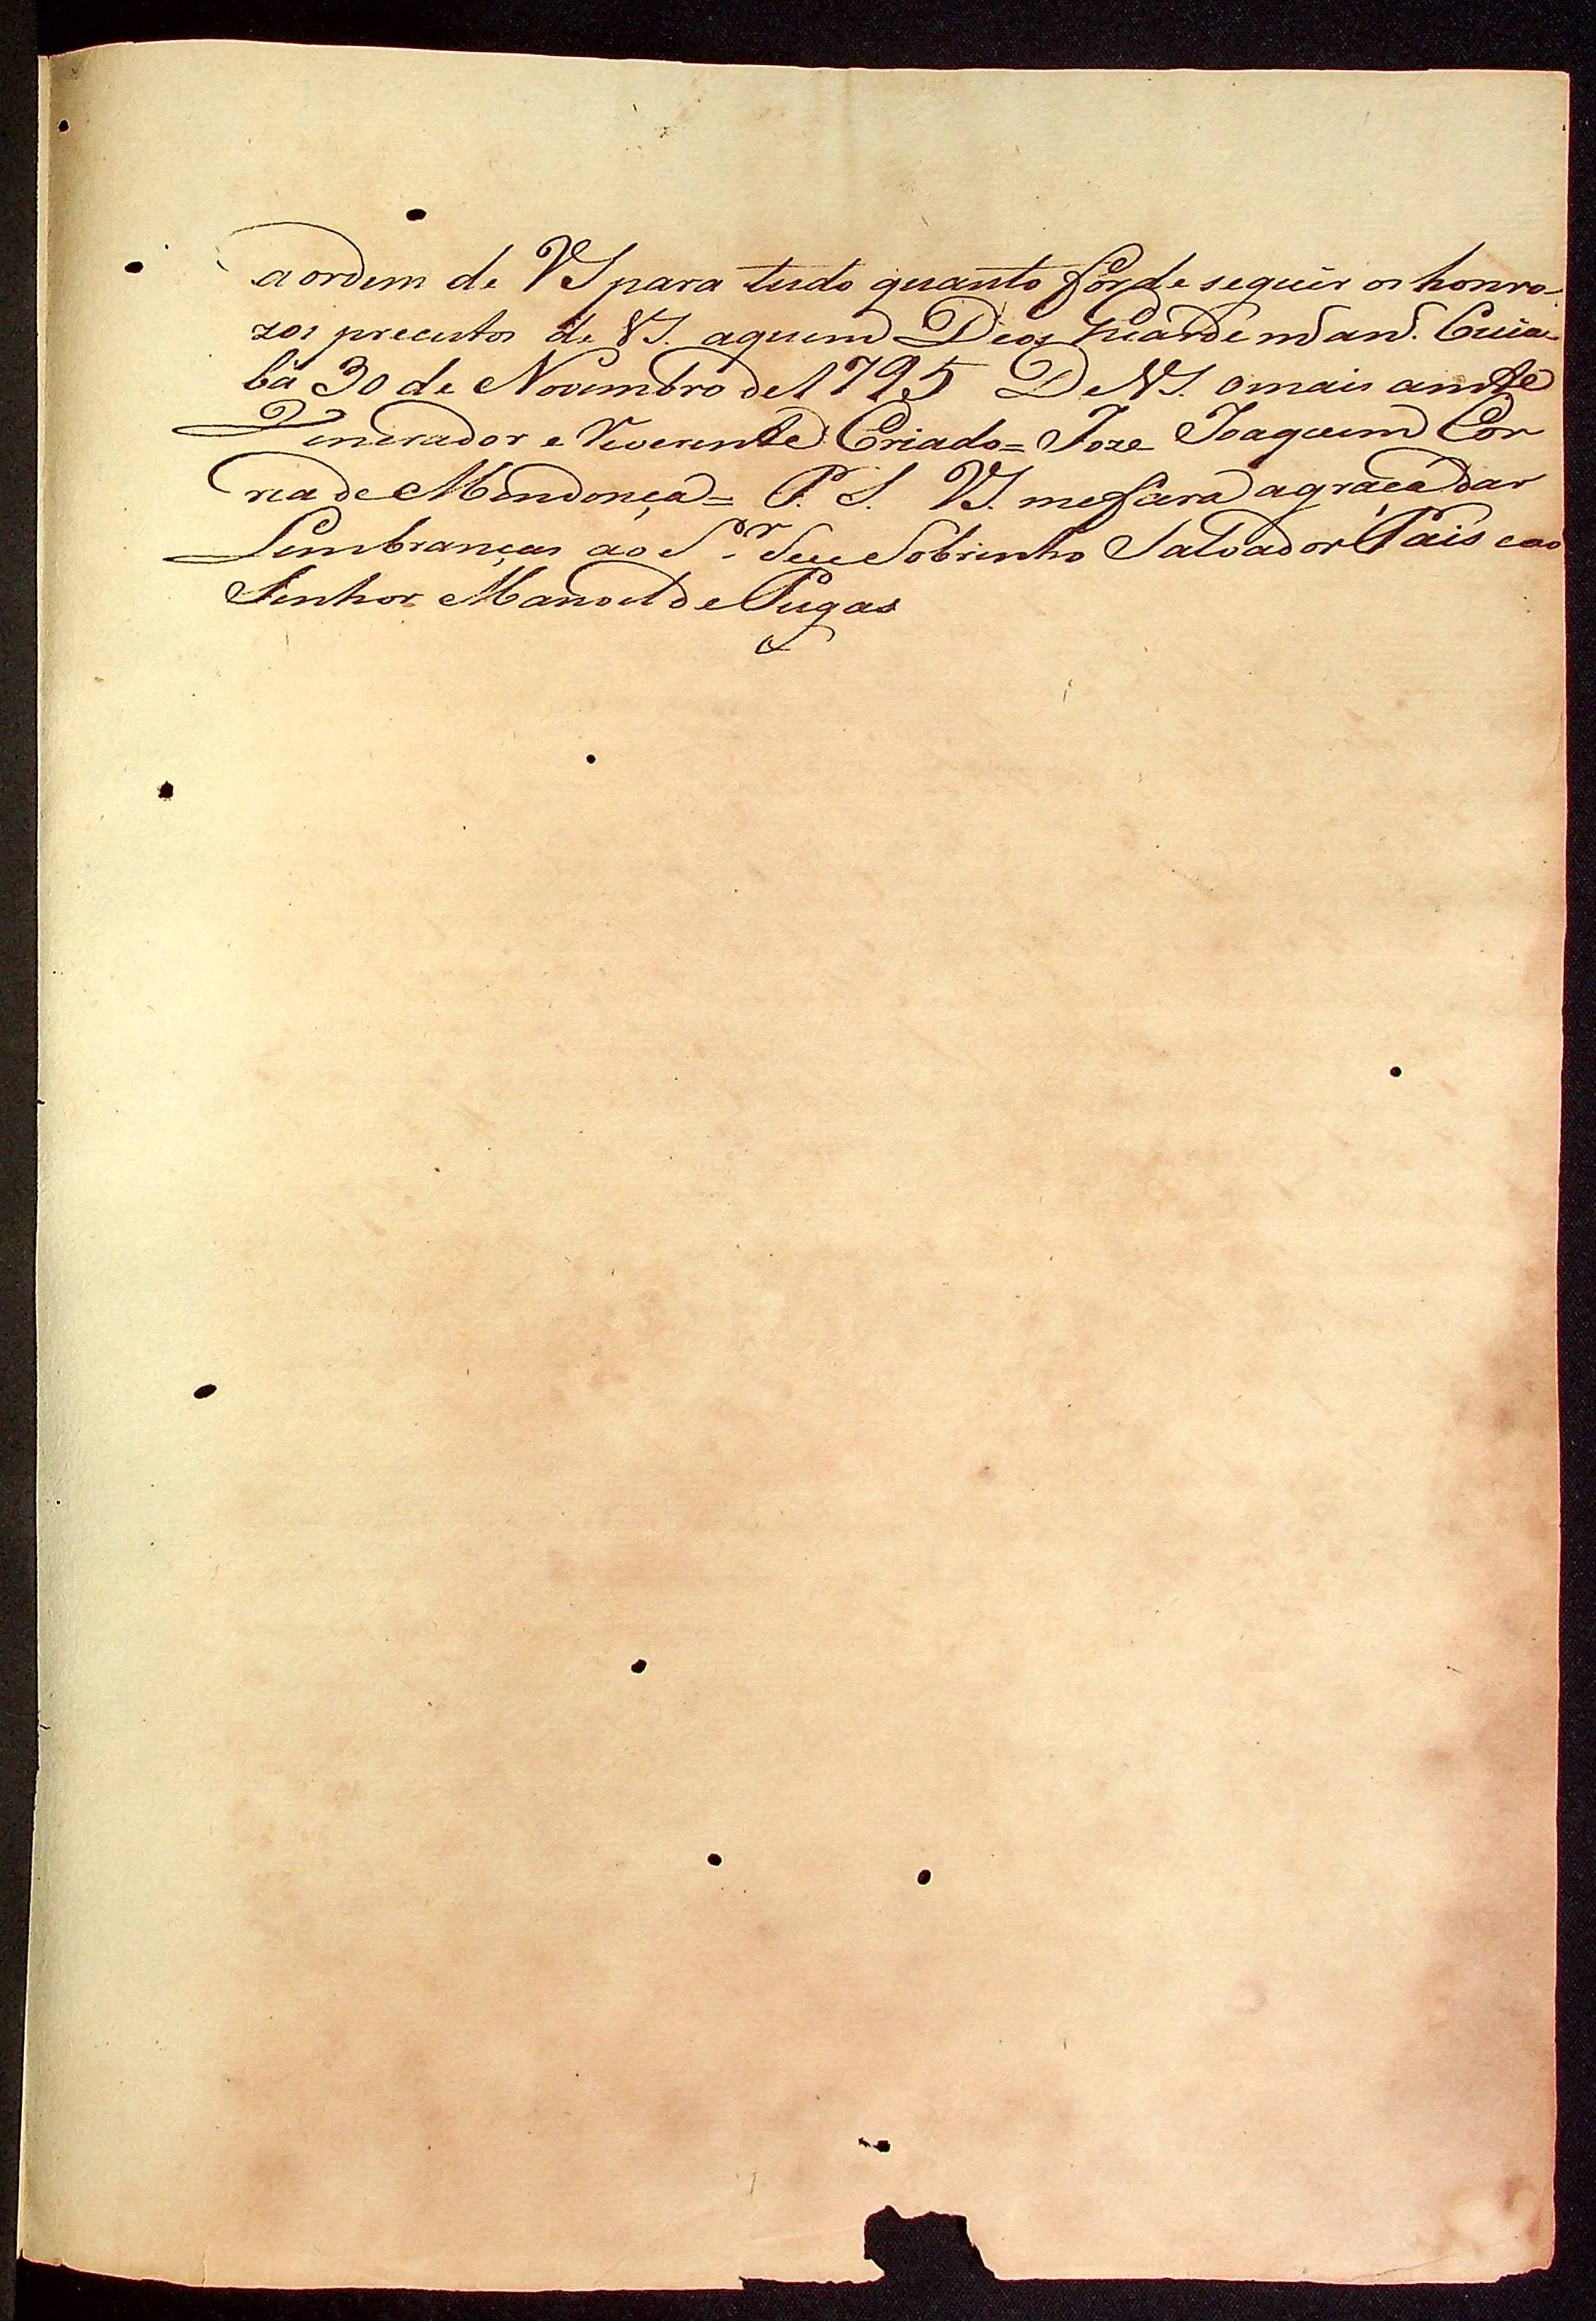 a ordem de VS para tudo quanto for de seguir os honro-
zos preceitos de VS. aquem Deos guarde ms. ans. Cuia-
bá 30 de Novembro de 1795 De VS. omais amte
Venerador e Reverente Criado = Joze Joaquim Cor
rea de Mendonça = P. S. VS. mefará agraça dar
Lembranças ao Sr. Seu Sobrinho Salvador Pais eao
Senhor Manoel de Pugas